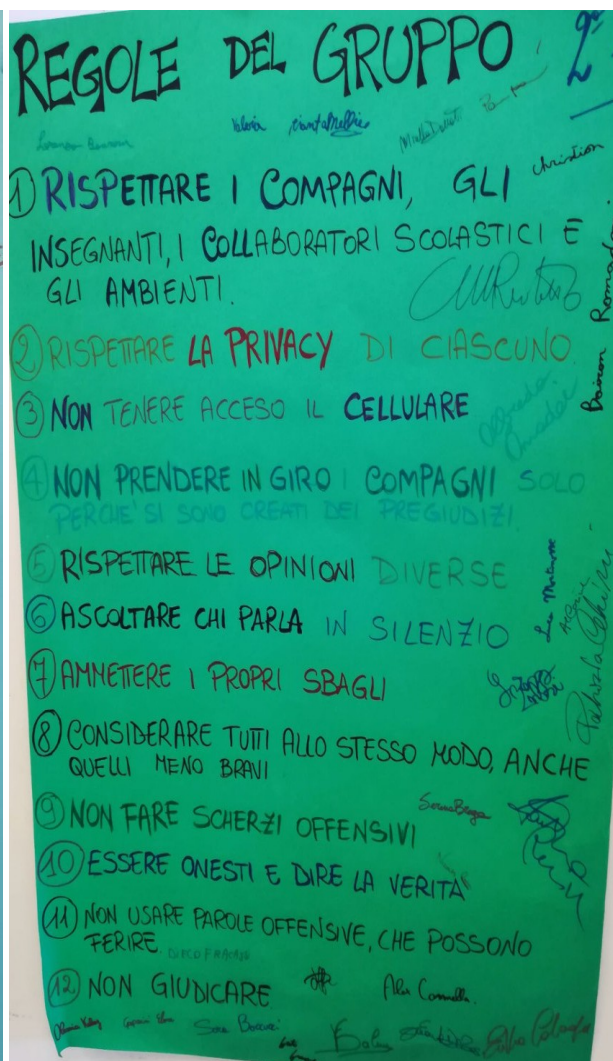 REGOLE DEL GRUPPO
2ª
Valeria
Christian
1) RISPETTARE I COMPAGNI, GLI
INSEGNANTI, I COLLABORATORI SCOLASTICI E
GLI AMBIENTI.
2) RISPETTARE LA PRIVACY DI CIASCUNO.
3) NON TENERE ACCESO IL CELLULARE
4) NON PRENDERE IN GIRO I COMPAGNI SOLO
PERCHE' SI SONO CREATI DEI PREGIUDIZI.
5) RISPETTARE LE OPINIONI DIVERSE
6) ASCOLTARE CHI PARLA IN SILENZIO
7) AMMETTERE I PROPRI SBAGLI
8) CONSIDERARE TUTTI ALLO STESSO MODO, ANCHE
QUELLI MENO BRAVI
9) NON FARE SCHERZI OFFENSIVI
10) ESSERE ONESTI E DIRE LA VERITÀ
11) NON USARE PAROLE OFFENSIVE, CHE POSSONO
FERIRE.
12) NON GIUDICARE